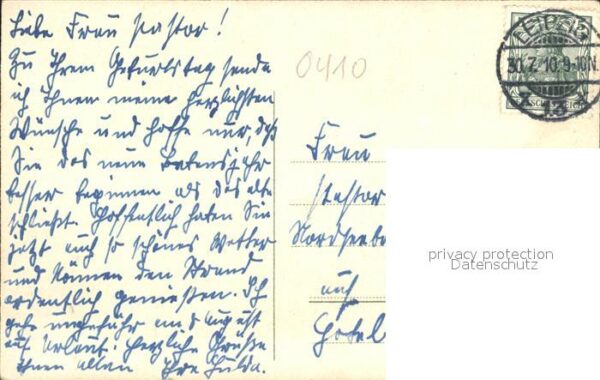 Liebe Frau Pastor!
Zu Ihrem Geburtstag sende
ich Ihnen meine herzlichsten
Wünsche und hoffe nur, daß
Sie das neue Lebensjahr
besser beginnen als das alte
schließt. Hoffentlich haben Sie
jetzt auch so schönes Wetter
und können den Strand
ordentlich genießen. Ich
gehe ungefähr am 8 August
auf Urlaub. Herzliche Grüße
Ihnen allen Ihre Hulda.
0410
LEIPZIG
30.7.10.9-10N.
13
Frau
Pastor
Nordseeba
auf
Hotel
privacy protection
Datenschutz